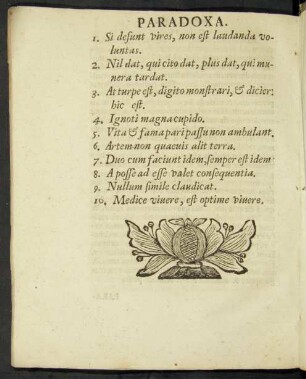 PARADOXA.
1. Si desunt vires, non est laudanda vo-
luntas.
2. Nil dat, qui cito dat, plus dat, qui mu-
nera tardat.
3. At turpe est, digito monstrari, & dicier:
hic est.
4. Ignoti magna cupido.
5. Vita & fama pari passu non ambulant.
6. Artem non quaevis alit terra.
7. Duo cum faciunt idem, semper est idem
8. A posse ad esse valet consequentia.
9. Nullum simile claudicat.
10. Medice vivere, est optime vivere.